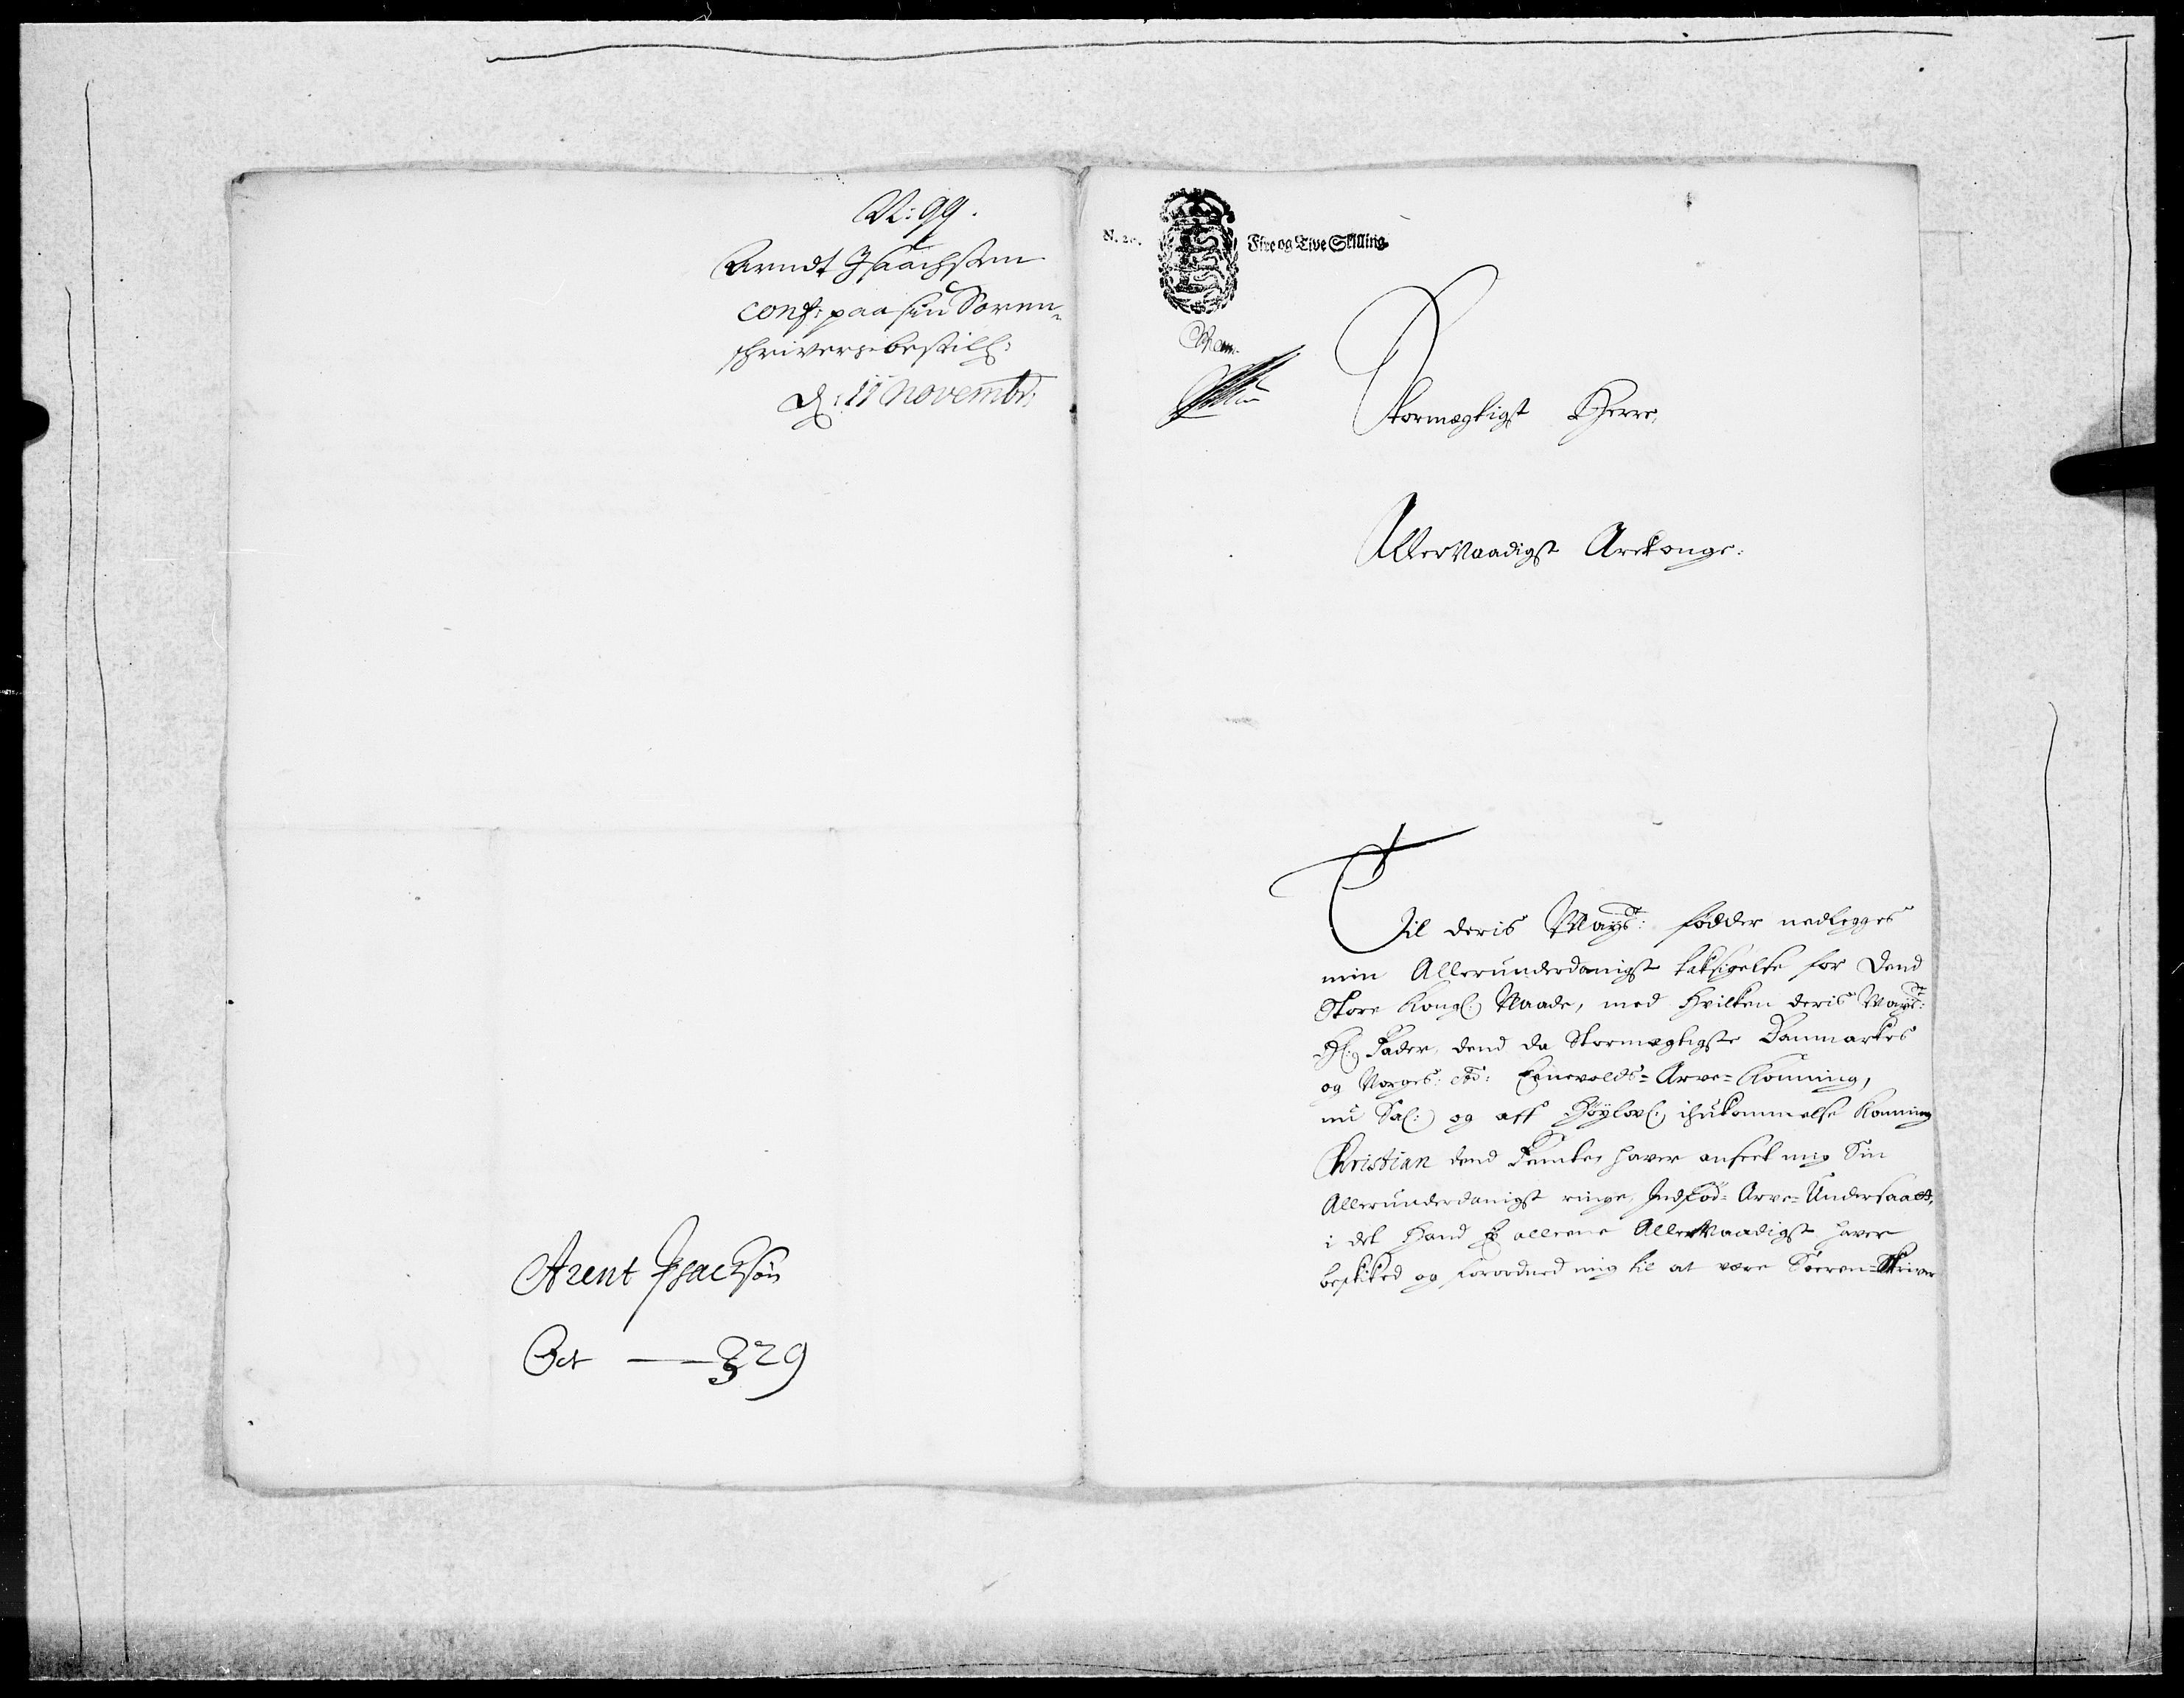 N: 99.
Arndt Isaachsen
conf: paa sin Soren-
schrivers bestill:
d: 11 Novembr:
Arent Isachsøn
Oct — 329
N. 20.
Fire og Tive Skilling
Stormægtigst Herre,
Aller Naadigst Arfkonge:
Til deris Mayst: födder nedlegges
min Allerunderdanigst taksigelse for dend
Store Kongl: Naade, med hvilken deris Mayst:
Hl: Fader, dend da Stormægtigste Danmarkes
og Norges: etc: Eenevolds= Arve= Konning,
nu Sal: og aff Höylovl: ihukommelse Konning
Christian dend Femte haver anseet mig Sin
Allerunderdanigst ringe, Indfød= Arve= Undersaatt,
i det Hand alleene Aller Naadigst haver
beskiked og forordned mig til at være Sören=Skriver